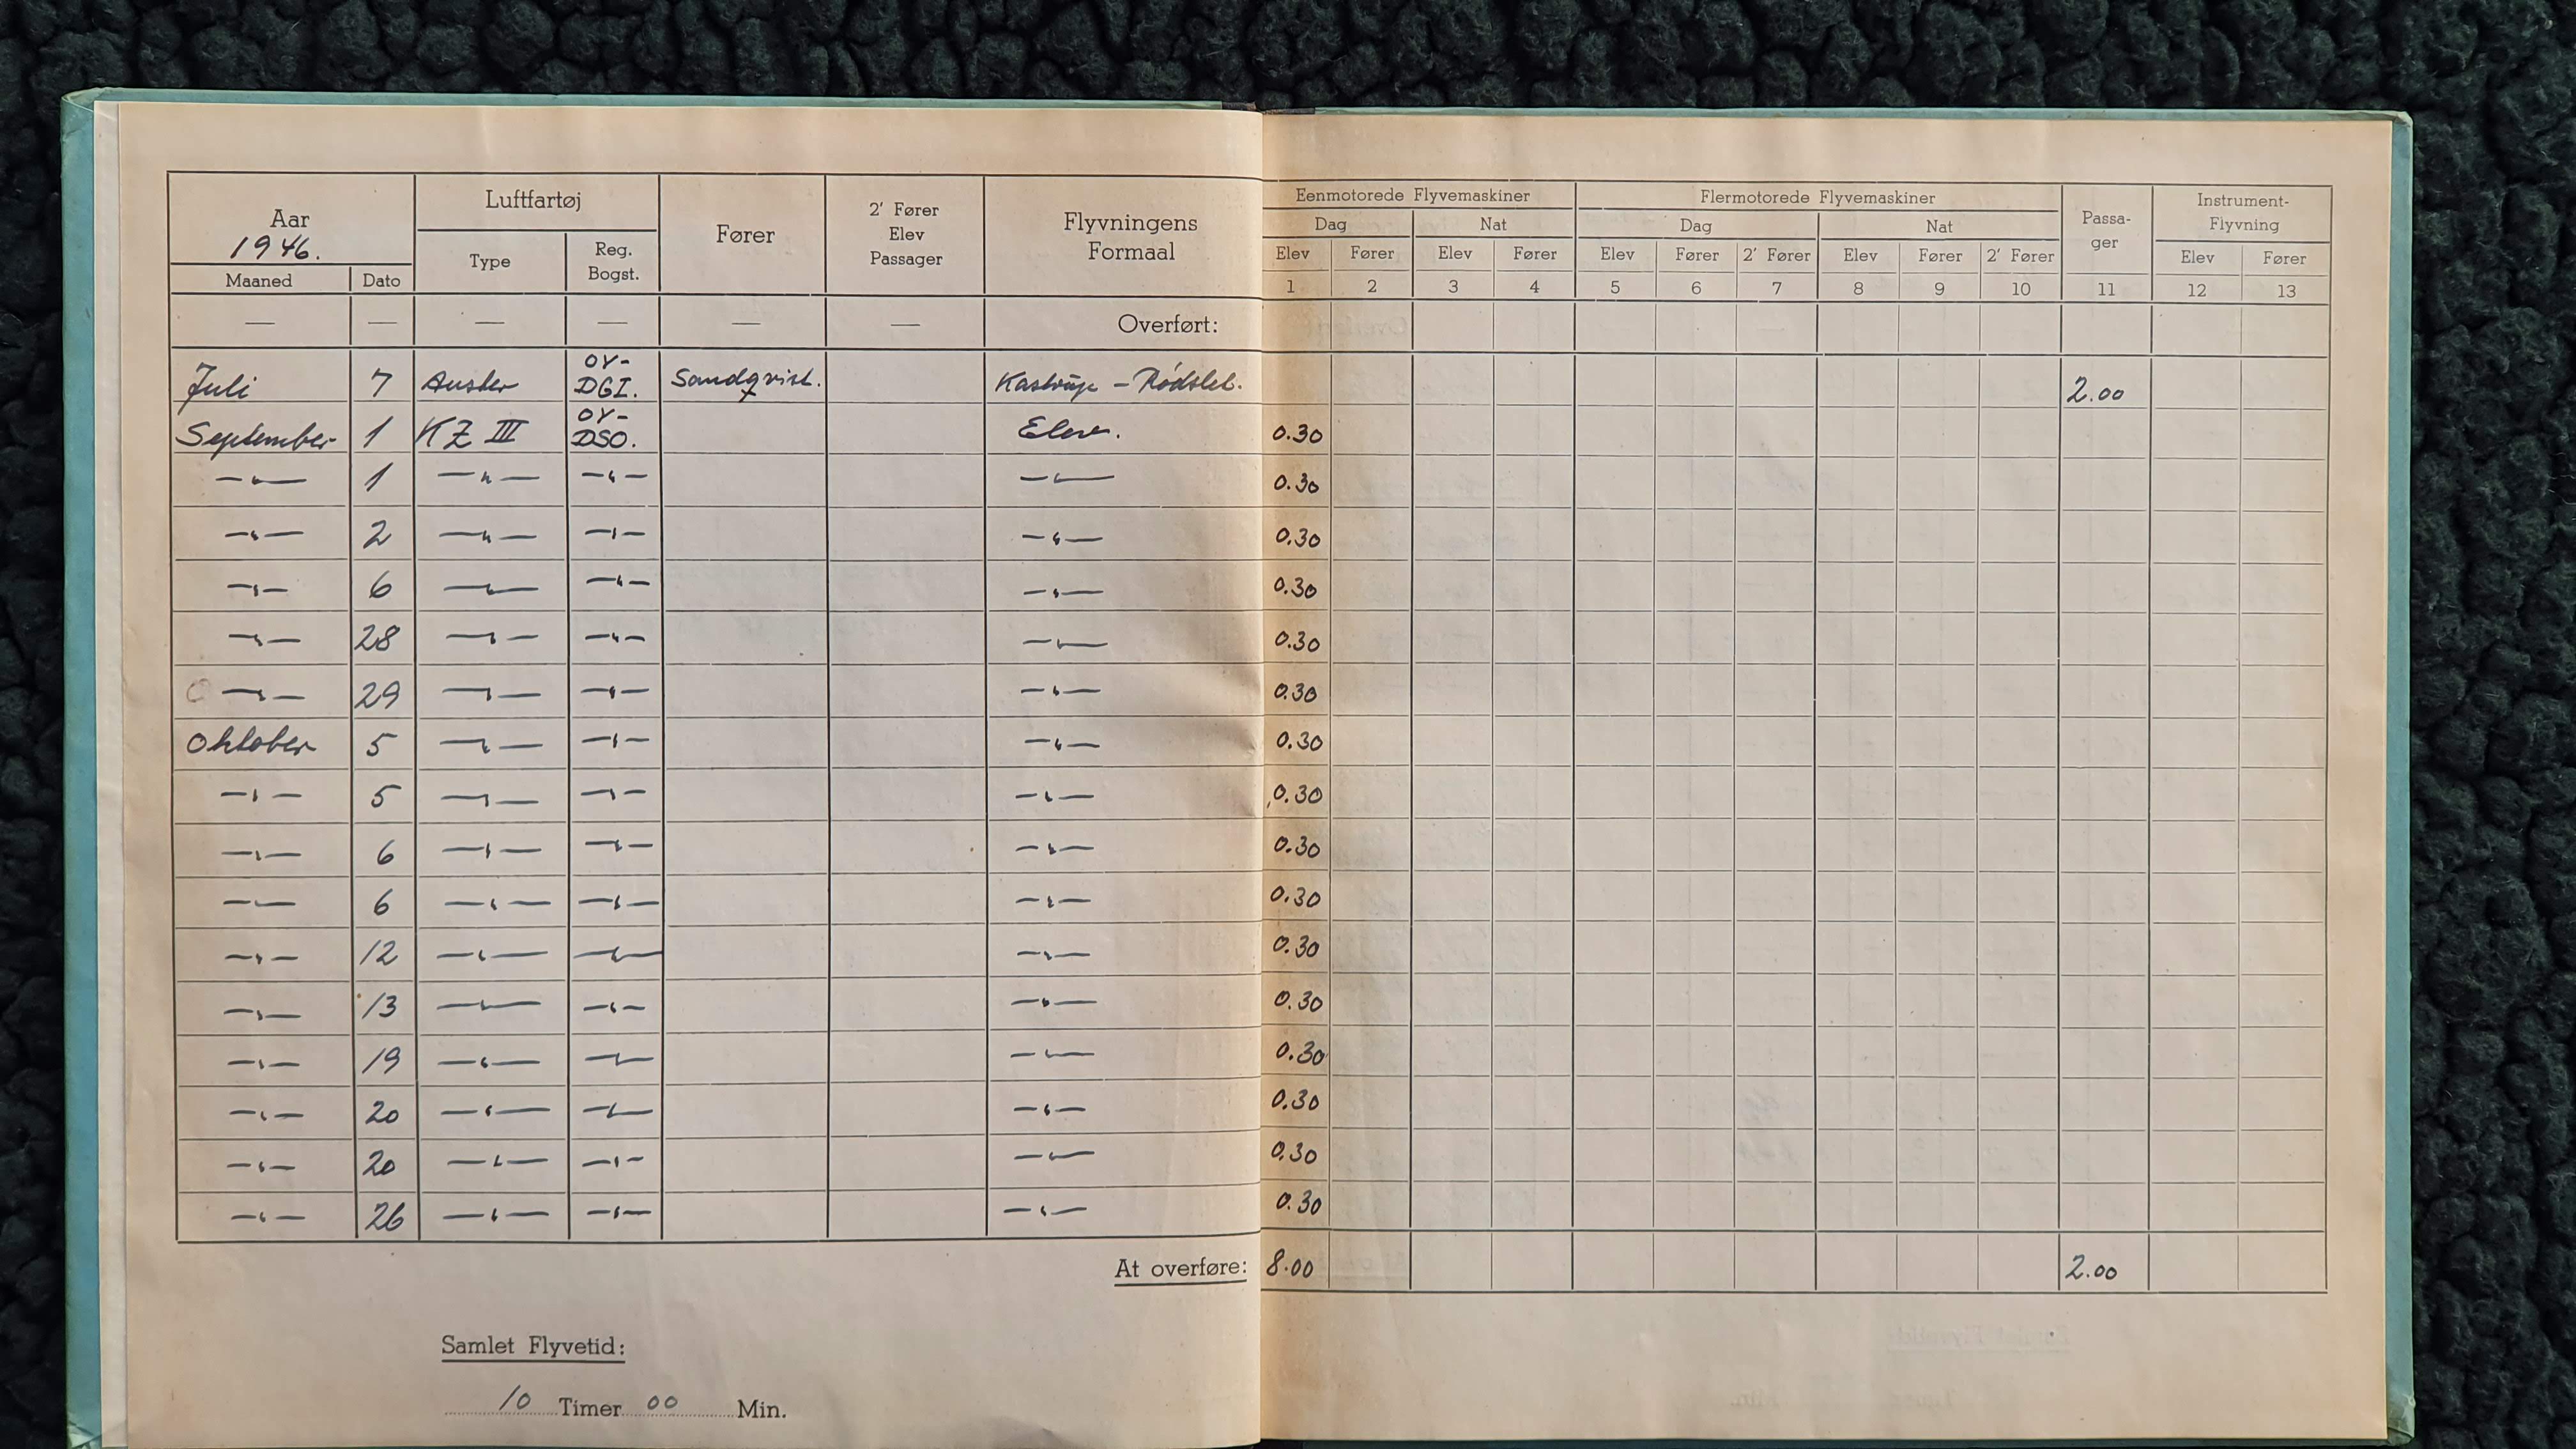 Aar 1946. Luftfartøj Fører 2' Fører Elev Passager Flyvningens Formaal Eenmotorede Flyvemaskiner Flermotorede Flyvemaskiner Passa-ger Instrument-Flyvning
Dag Nat Dag Nat
Maaned Dato Type Reg. Bogst. Elev Fører Elev Fører Elev Fører 2' Fører Elev Fører 2' Fører Elev Fører
1 2 3 4 5 6 7 8 9 10 11 12 13
— — — — — — Overført:
Juli 7 Auster OY-DGI. Sandqvist. Kastrup – Rødslet. 2.00
September 1 KZ III OY-DSO. Elev. 0.30
—"— 1 —"— —"— —"— 0.30
—"— 2 —"— —"— —"— 0.30
—"— 6 —"— —"— —"— 0.30
—"— 28 —"— —"— —"— 0.30
—"— 29 —"— —"— —"— 0.30
Oktober 5 —"— —"— —"— 0.30
—"— 5 —"— —"— —"— 0.30
—"— 6 —"— —"— —"— 0.30
—"— 6 —"— —"— —"— 0.30
—"— 12 —"— —"— —"— 0.30
—"— 13 —"— —"— —"— 0.30
—"— 19 —"— —"— —"— 0.30
—"— 20 —"— —"— —"— 0.30
—"— 20 —"— —"— —"— 0.30
—"— 26 —"— —"— —"— 0.30
At overføre: 8.00 2.00
Samlet Flyvetid:
10 Timer 00 Min.